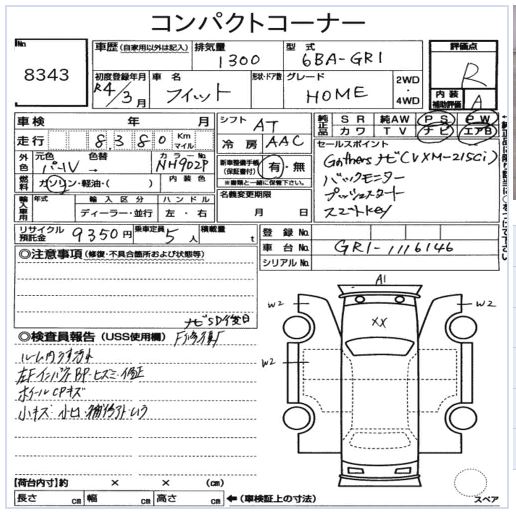 コンパクトコーナー
No.
8343
車歴 (自家用以外は記入)
排気量
1300
型式
6BA-GR1
評価点
R
初度登録年月
R4/3月
車名
フィット
形状・ドア数
グレード
HOME
2WD
・
4WD
内装
補助評価
A
車検 年 月
シフト
AT
純正品
SR 純AW PS PW
カワ TV ナビ エアB
走行
8380
Km
マイル
冷房
AAC
セールスポイント
Gathers ナビ(VXM-215Ci)
バックモニター
プッシュスタート
スマートKey
外色
元色
パール
色替
カラーNo.
NH902P
新車整備手帳
(保証書付)
有・無
※書類と一緒に保管下さい。
燃料
ガソリン・軽油・( )
内装色
輸入車用
年式
輸入区分
ディーラー・並行
ハンドル
左・右
名義変更期限
月 日
リサイクル預託金
9350円
乗車定員
5人
積載量
t
登録No.
車台No.
GR1-1116146
シリアルNo.
◎注意事項 (修復・不具合箇所および状態等)
ナビSD後日
◎検査員報告 (USS使用欄)
ルーム内うす汚れ
左Fインパネ BP ヒズミ・修正
ホイールCPキズ
小キズ 小凹
A1
XX
W2
W2
W2
【荷台内寸】約 × × (cm)
長さ cm 幅 cm 高さ cm
←(車検証上の寸法)
スペア